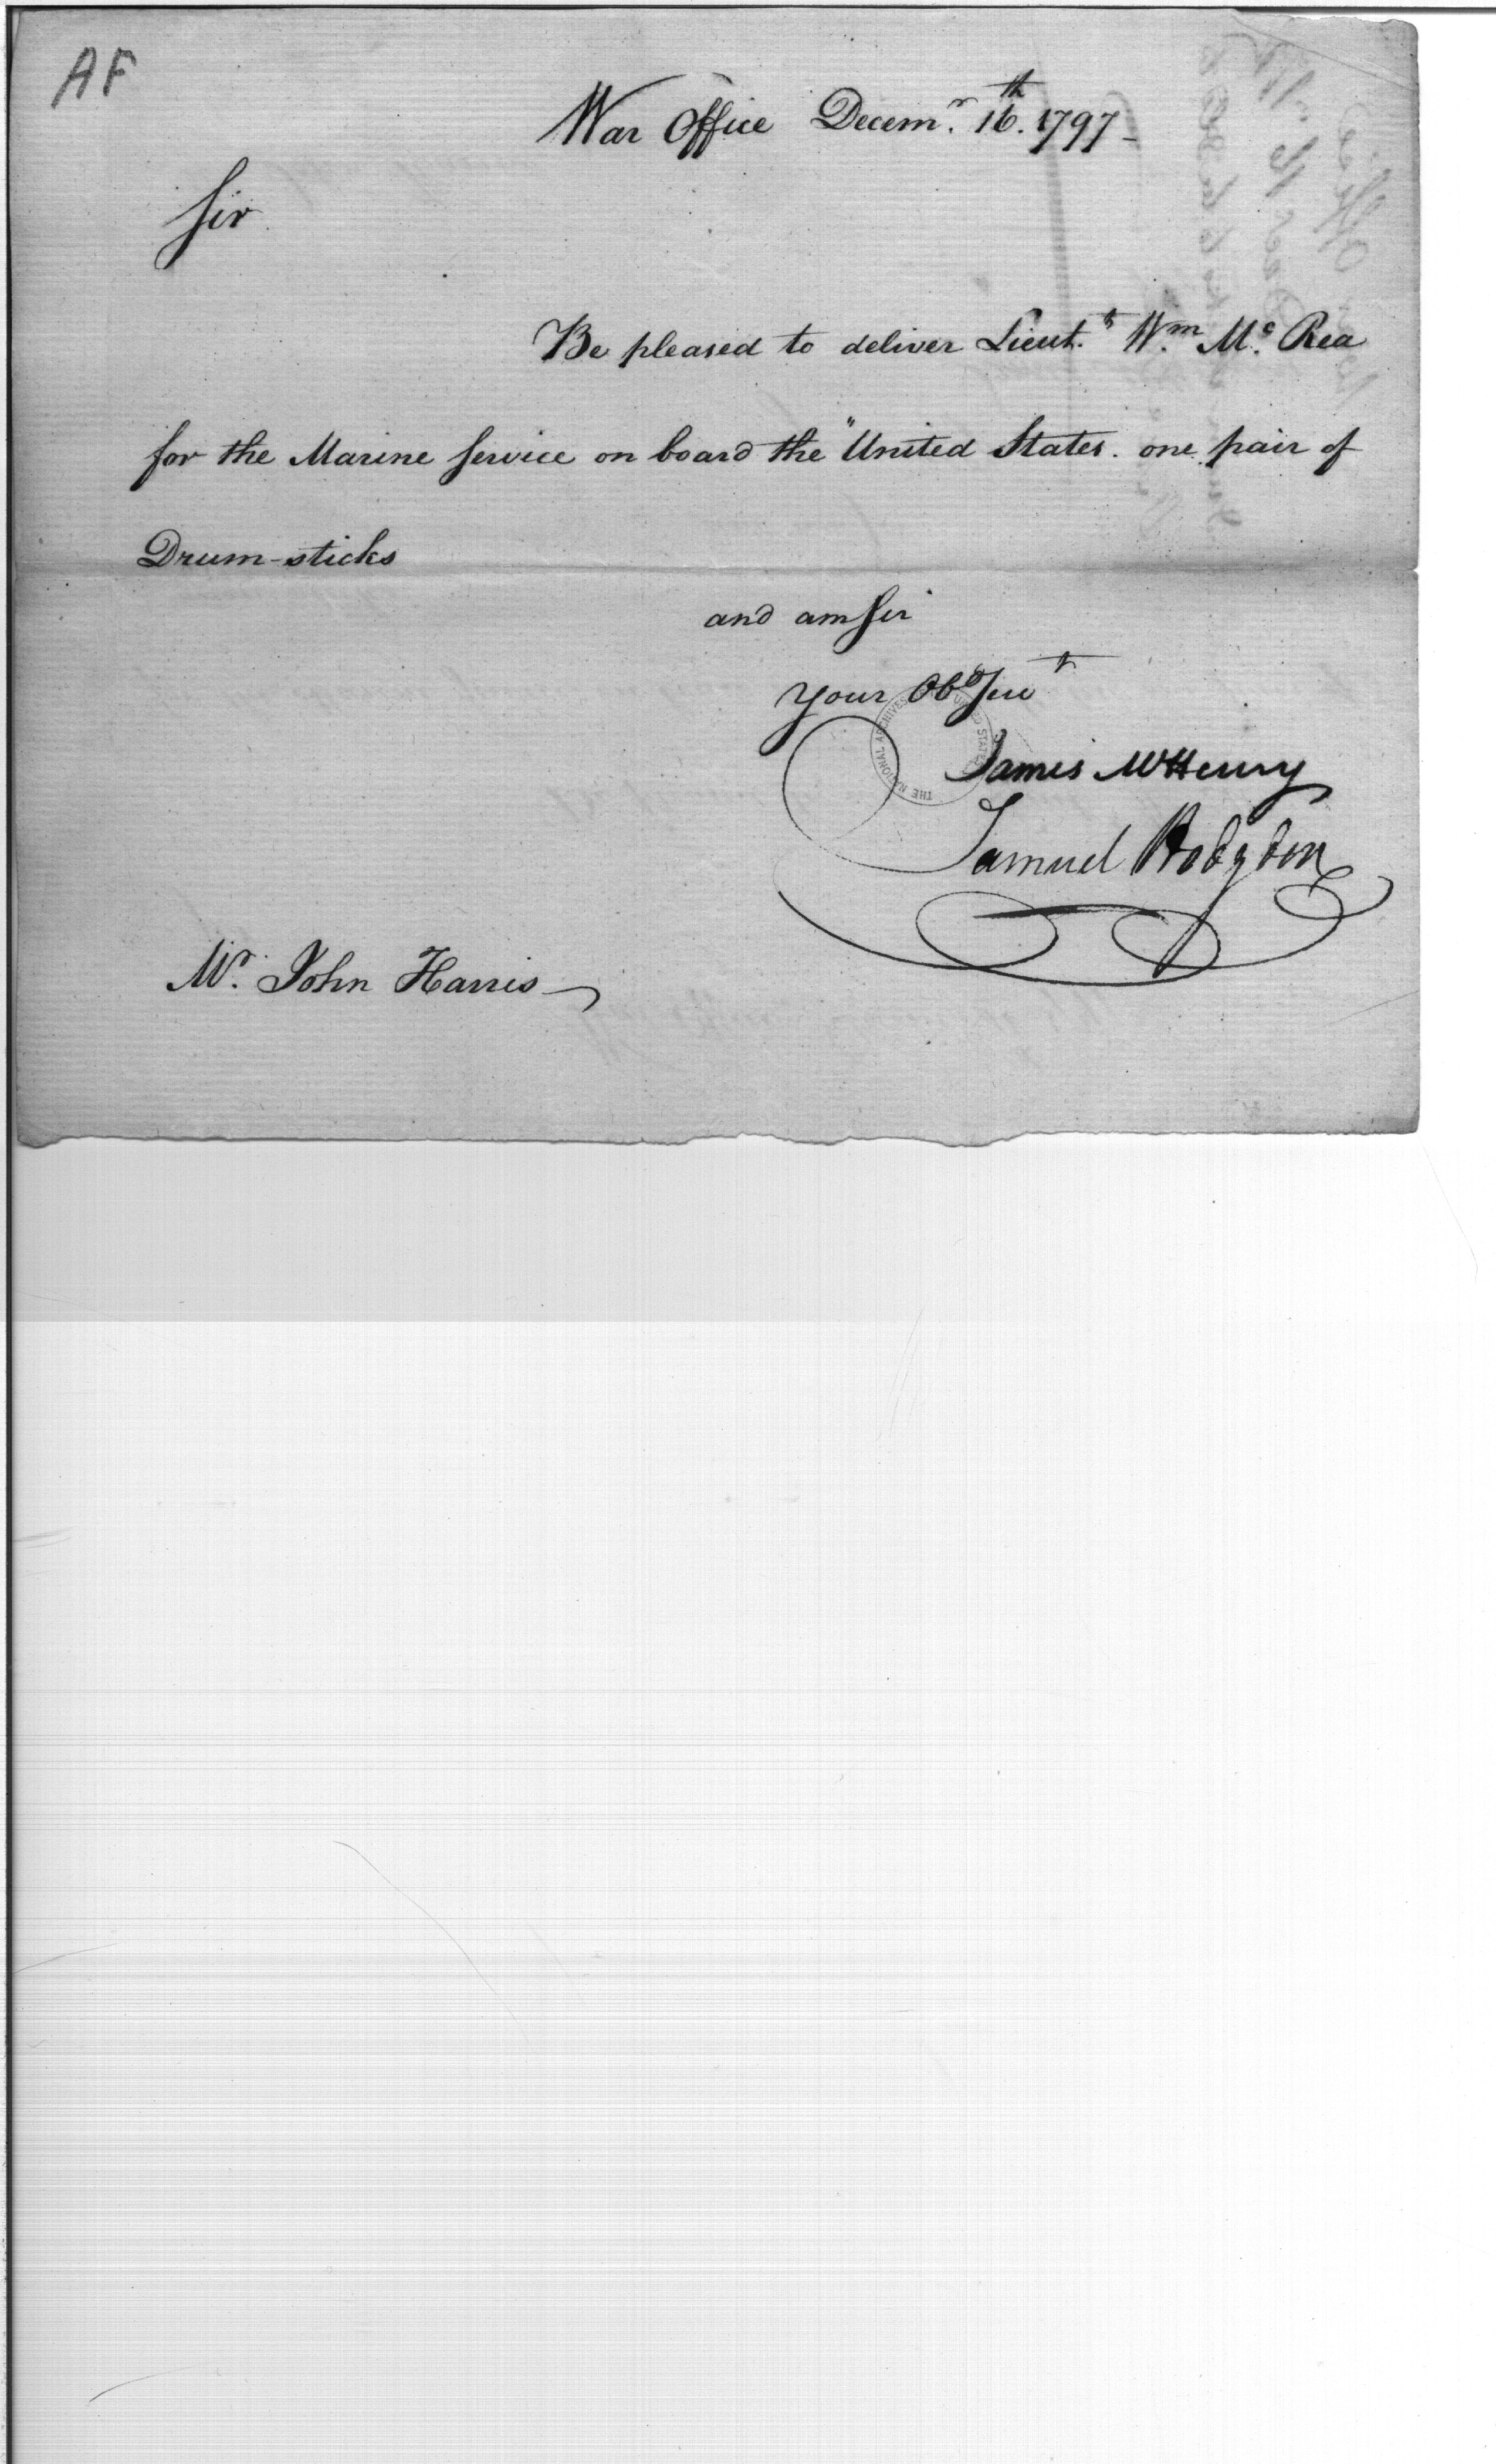 AF
War Office Decemr. 16th. 1797-
Sir
Be pleased to deliver Lieut.t Wm. Mc. Rea
for the Marine Service on board the "United States. one pair of
Drum-sticks
and am Sir
your Obd Servt
THE NATIONAL ARCHIVES UNITED STATES
James McHenry
Samuel Hodgdon
Mr. John Harris